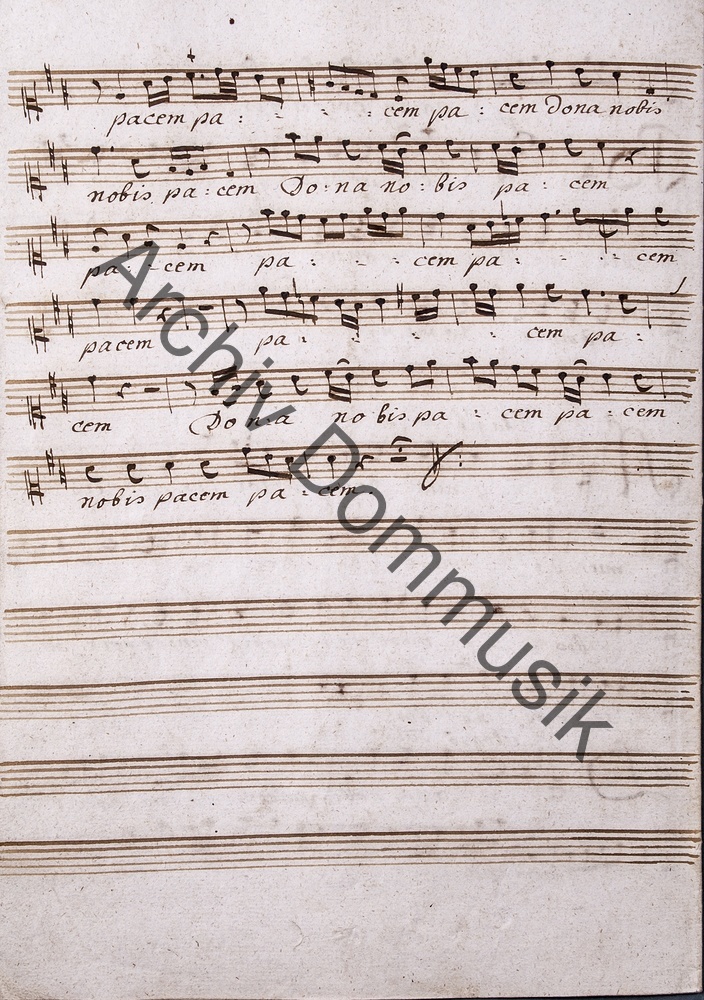 pacem pa : - - : cem pa : cem dona nobis
nobis pa : cem Do : na no : bis pa : cem
pa : - cem pa : - - : cem pa : - - : - cem
pacem pa : : : cem pa :
cem Do na no bis pa : cem pa : cem
nobis pacem pa : cem .
Archiv Dommusik